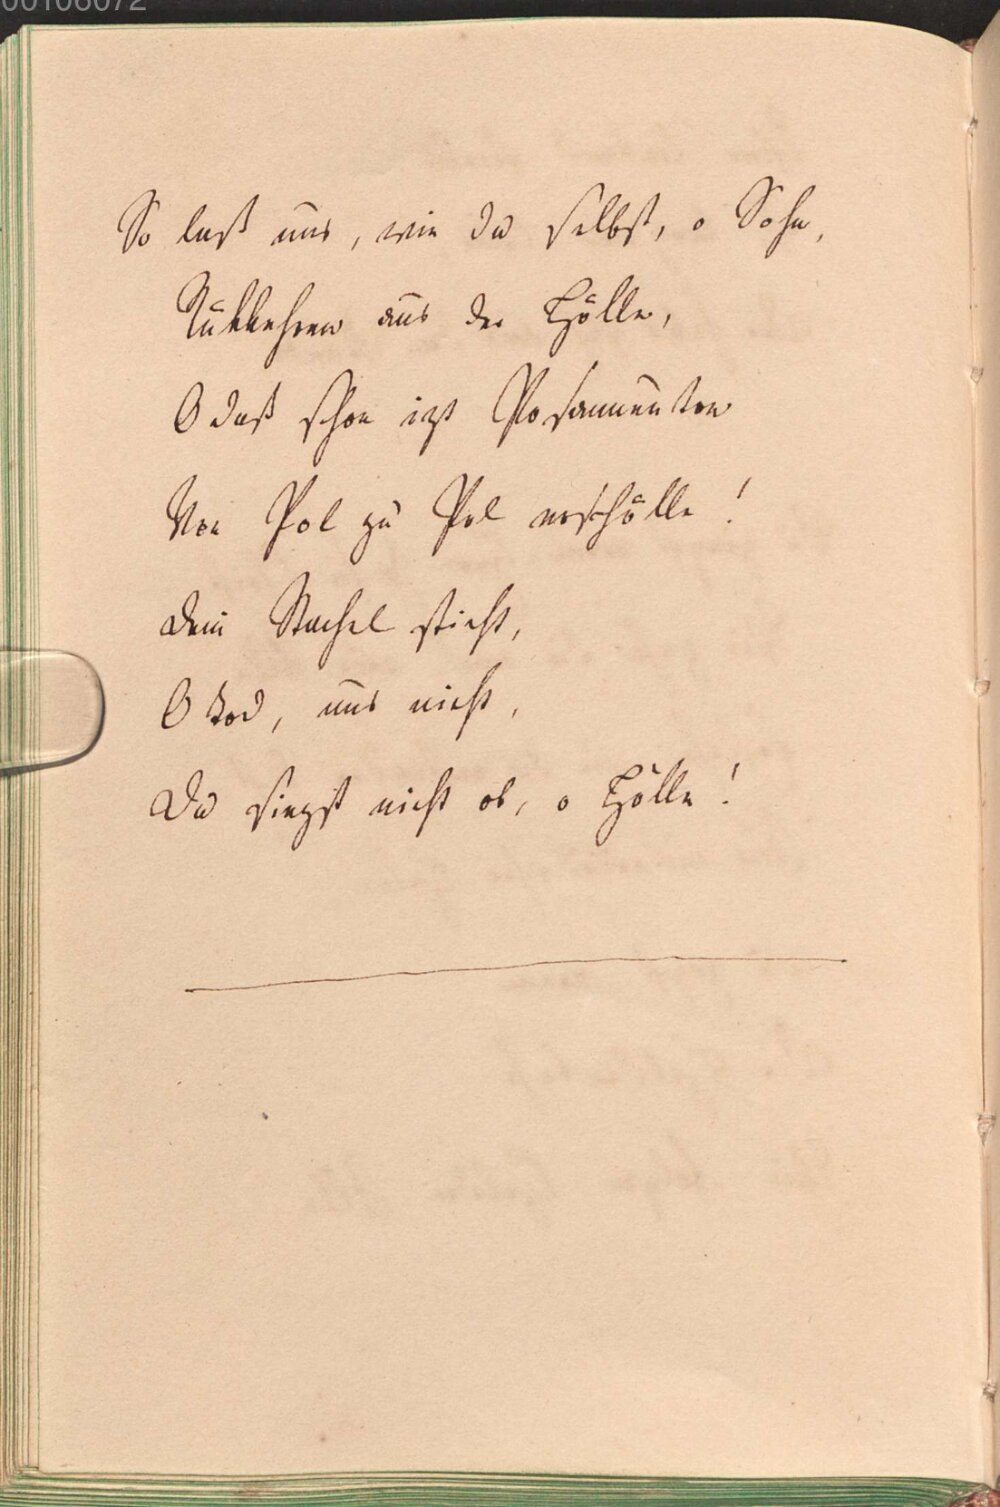 00106072
So laß uns, wie du selbst, o Sohn,
Rükkehren aus der Hölle,
O daß schon izt Posaunenton
Von Pol zu Pol erschölle!
Dein Stachel sticht,
O Tod, uns nicht,
Du siegst nicht ob, o Hölle!